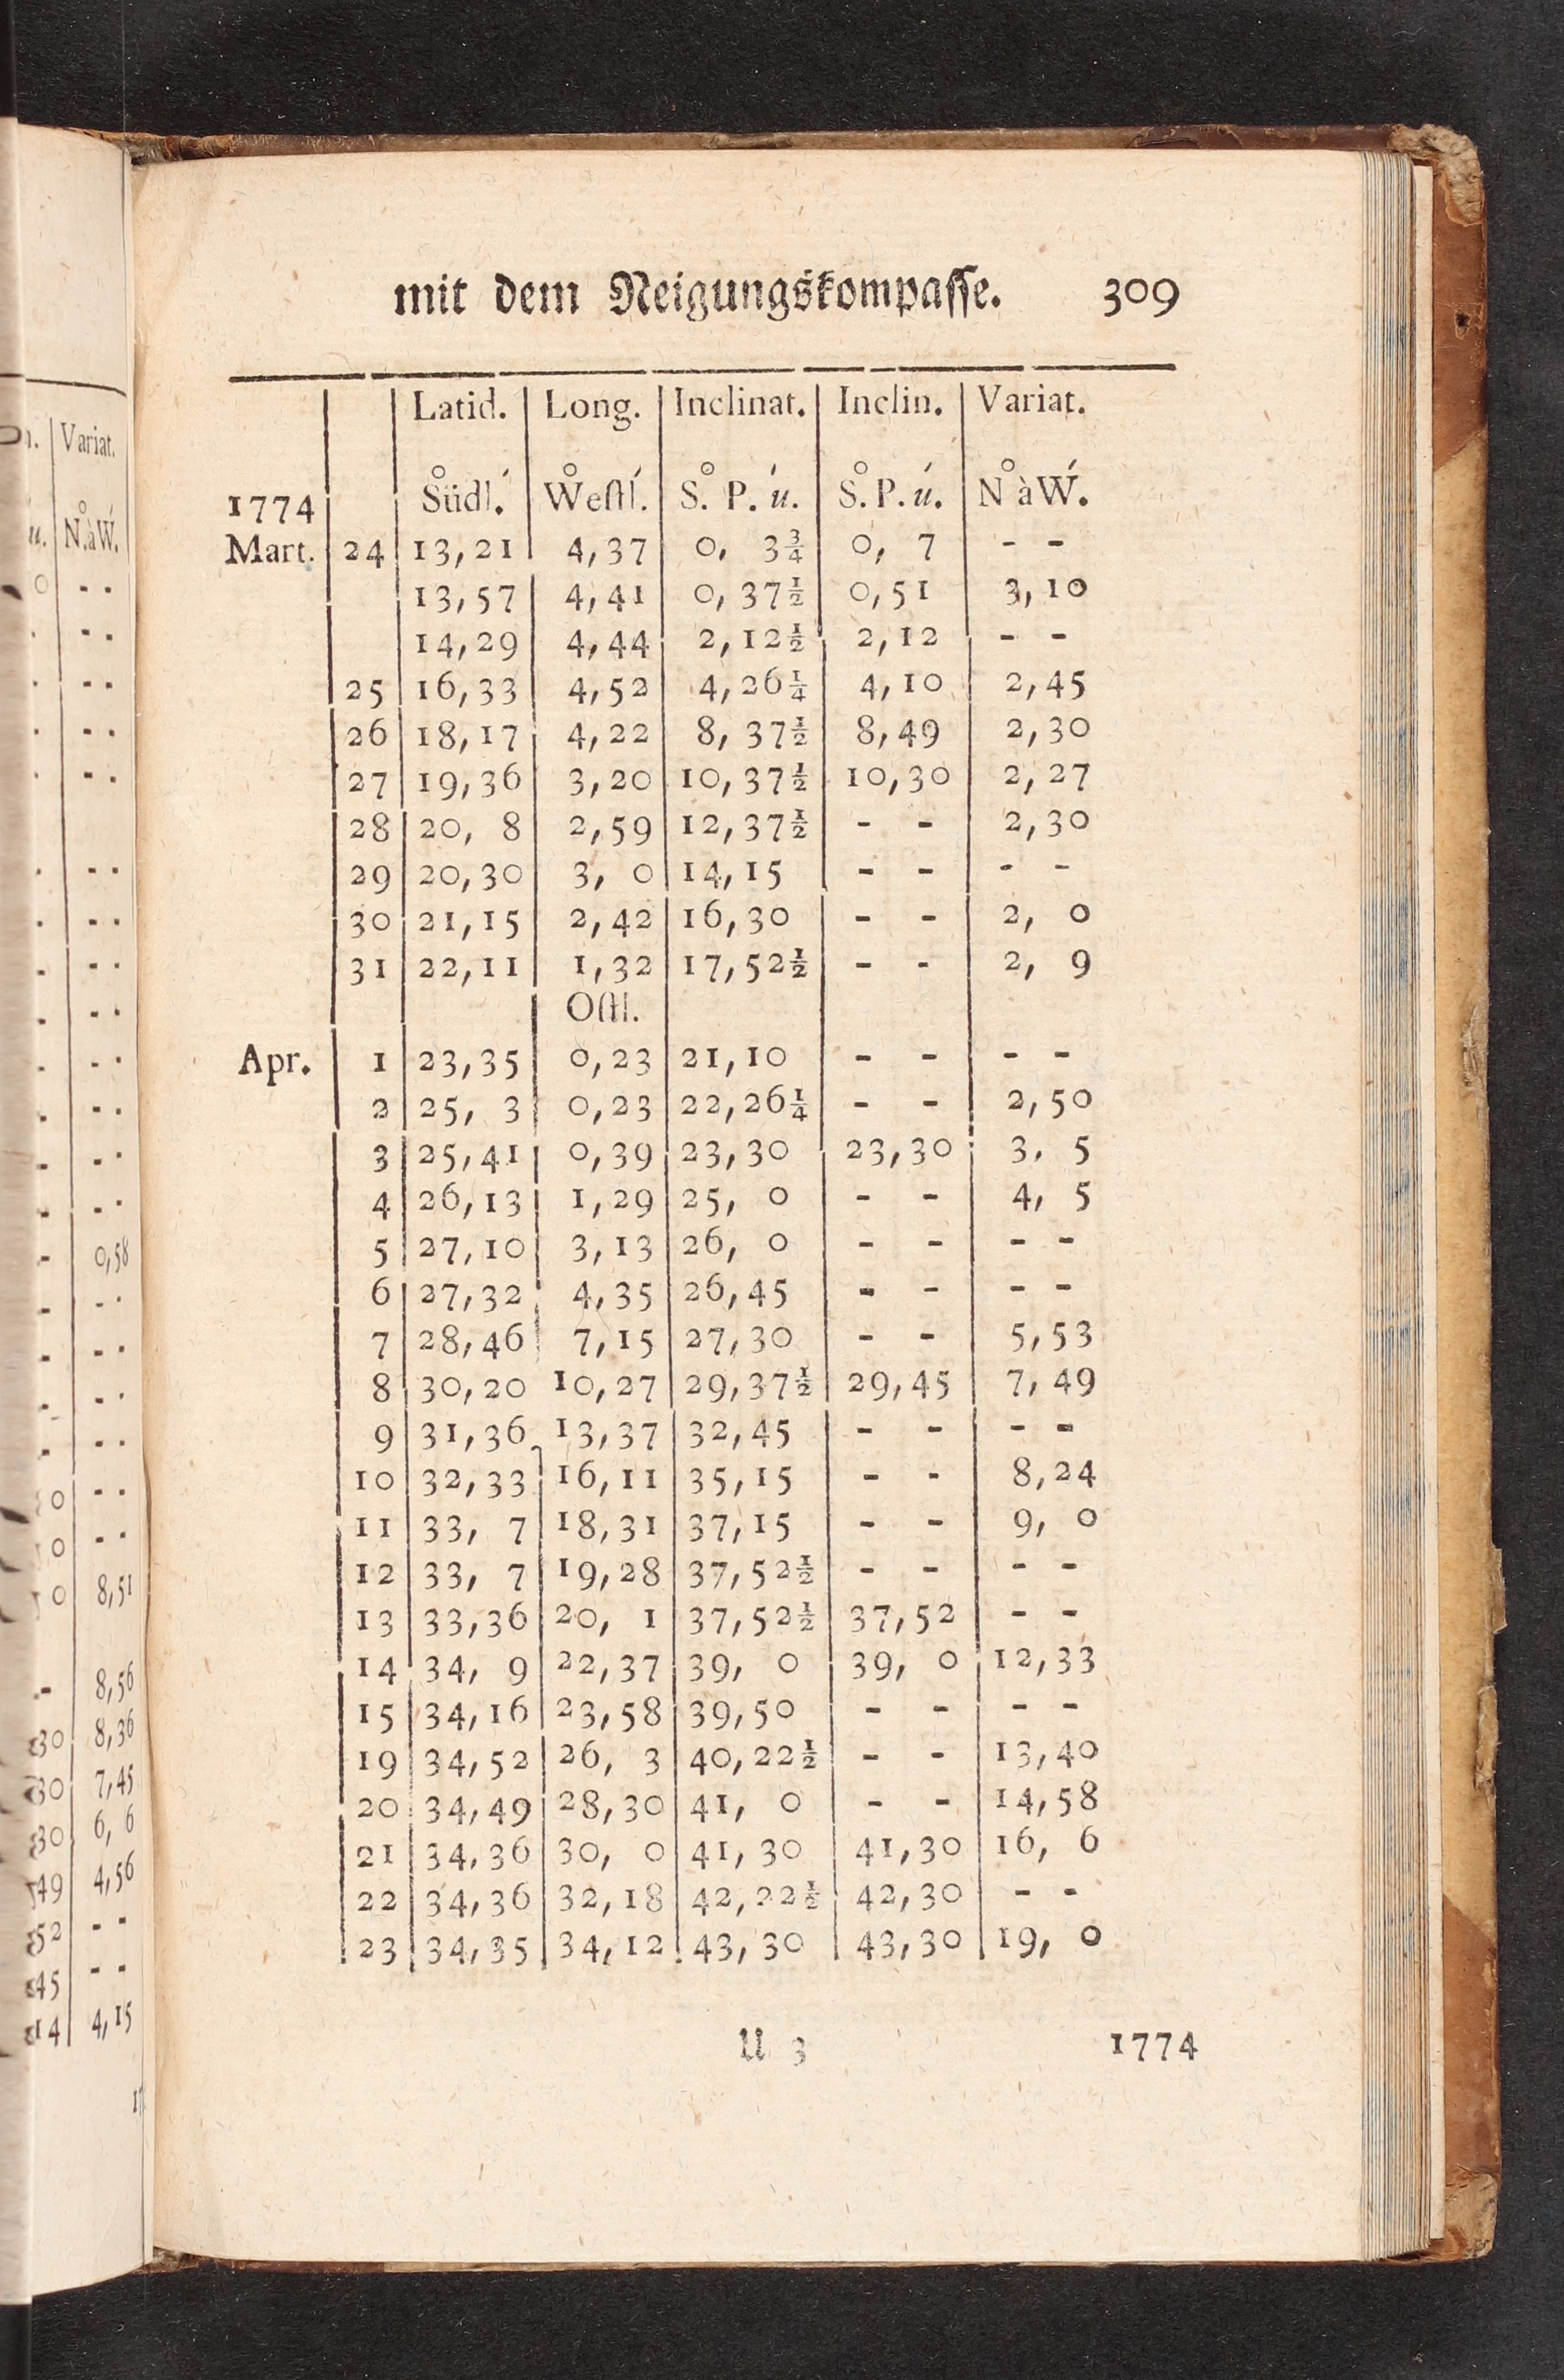 mit dem Neigungskompaſſe. 309
Latid. Long. Inclinat. Inclin. Variat.
1774 Südl. Weſtl. S. P. u. S. P. u. N à W.
Mart. 24 13,21 4,37 0, 3¾ 0, 7 - -
13,57 4,41 0,37½ 0,51 3,10
14,29 4,44 2,12½ 2,12 - -
25 16,33 4,52 4,26¼ 4,10 2,45
26 18,17 4,22 8,37½ 8,49 2,30
27 19,36 3,20 10,37½ 10,30 2,27
28 20, 8 2,59 12,37½ - - 2,30
29 20,30 3, 0 14,15 - - - -
30 21,15 2,42 16,30 - - 2, 0
31 22,11 1,32 17,52½ - - 2, 9
Oſtl.
Apr. 1 23,35 0,23 21,10 - - - -
2 25, 3 0,23 22,26¼ - - 2,50
3 25,41 0,39 23,30 23,30 3, 5
4 26,13 1,29 25, 0 - - 4, 5
5 27,10 3,13 26, 0 - - - -
6 27,32 4,35 26,45 - - - -
7 28,46 7,15 27,30 - - 5,53
8 30,20 10,27 29,37½ 29,45 7,49
9 31,36 13,37 32,45 - - - -
10 32,33 16,11 35,15 - - 8,24
11 33, 7 18,31 37,15 - - 9, 0
12 33, 7 19,28 37,52½ - - - -
13 33,36 20, 1 37,52½ 37,52 - -
14 34, 9 22,37 39, 0 39, 0 12,33
15 34,16 23,58 39,50 - - - -
19 34,52 26, 3 40,22½ - - 13,40
20 34,49 28,30 41, 0 - - 14,58
21 34,36 30, 0 41,30 41,30 16, 6
22 34,36 32,18 42,22½ 42,30 - -
23 34,35 34,12 43,30 43,30 19, 0
U 3 1774